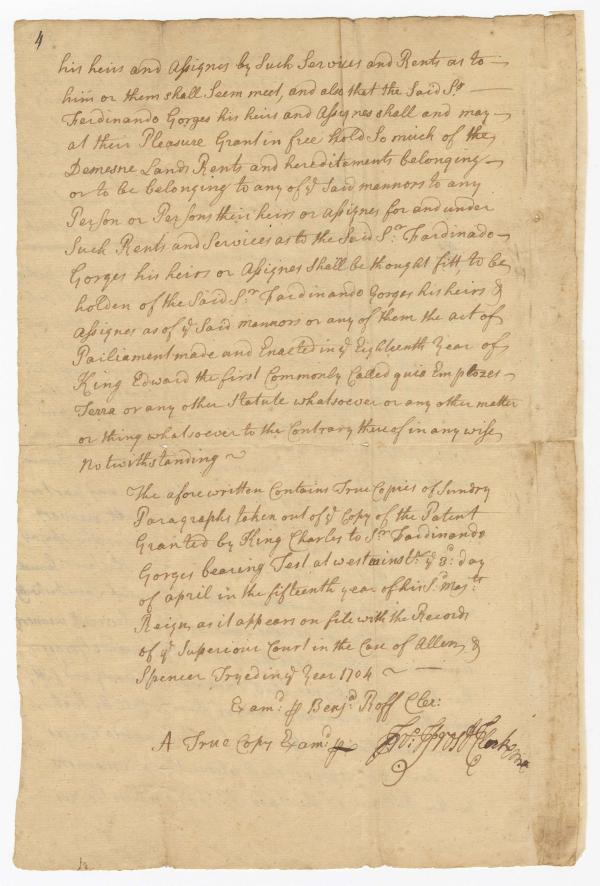 4
his heirs and Assignes by Such Services and Rents as to
him or them shall Seem meet, and also that the Said Sr.
Ferdinando Gorges his heirs and Assignes shall and may
at their Pleasure Grant in free hold So much of the
Demesne Lands Rents and hereditements belonging
or to be belonging to any of ye Said mannors to any
Person or Persons their heirs or assignes for and under
Such Rents and Services as to the Said Sr. Fardinado
Gorges his heirs or Assignes Shall be thought fitt, to be
holden of the Said Sr. Fardinando Gorges his heirs &
Assignes as of ye Said mannors or any of them the act of
Pailiament made and Enacted in ye Eighteenth Year of
King Edward the first Commonly Called quia Emptozes
Terra or any other Statute whatsoever or any other matter
or thing whatsoever to the Contrary thereof in any wise
Notwithstanding ~
The afore written Contains True Copies of Sundry
Paragraphs taken out of ye Copy of the Patent
Granted by King Charles to Sr. Fardinando
Gorges bearing Test at westminstr. ye 3d: day
of april in the fifteenth year of his Sd. Majtis
Reign, as it appears on file with the Records
of ye Superiour Court in the Case of Allen &
Spencer Tryed in ye Year 1704 ~
Examd. ⅌ Benja. Roff Cler:
A True Copy Examd. ⅌